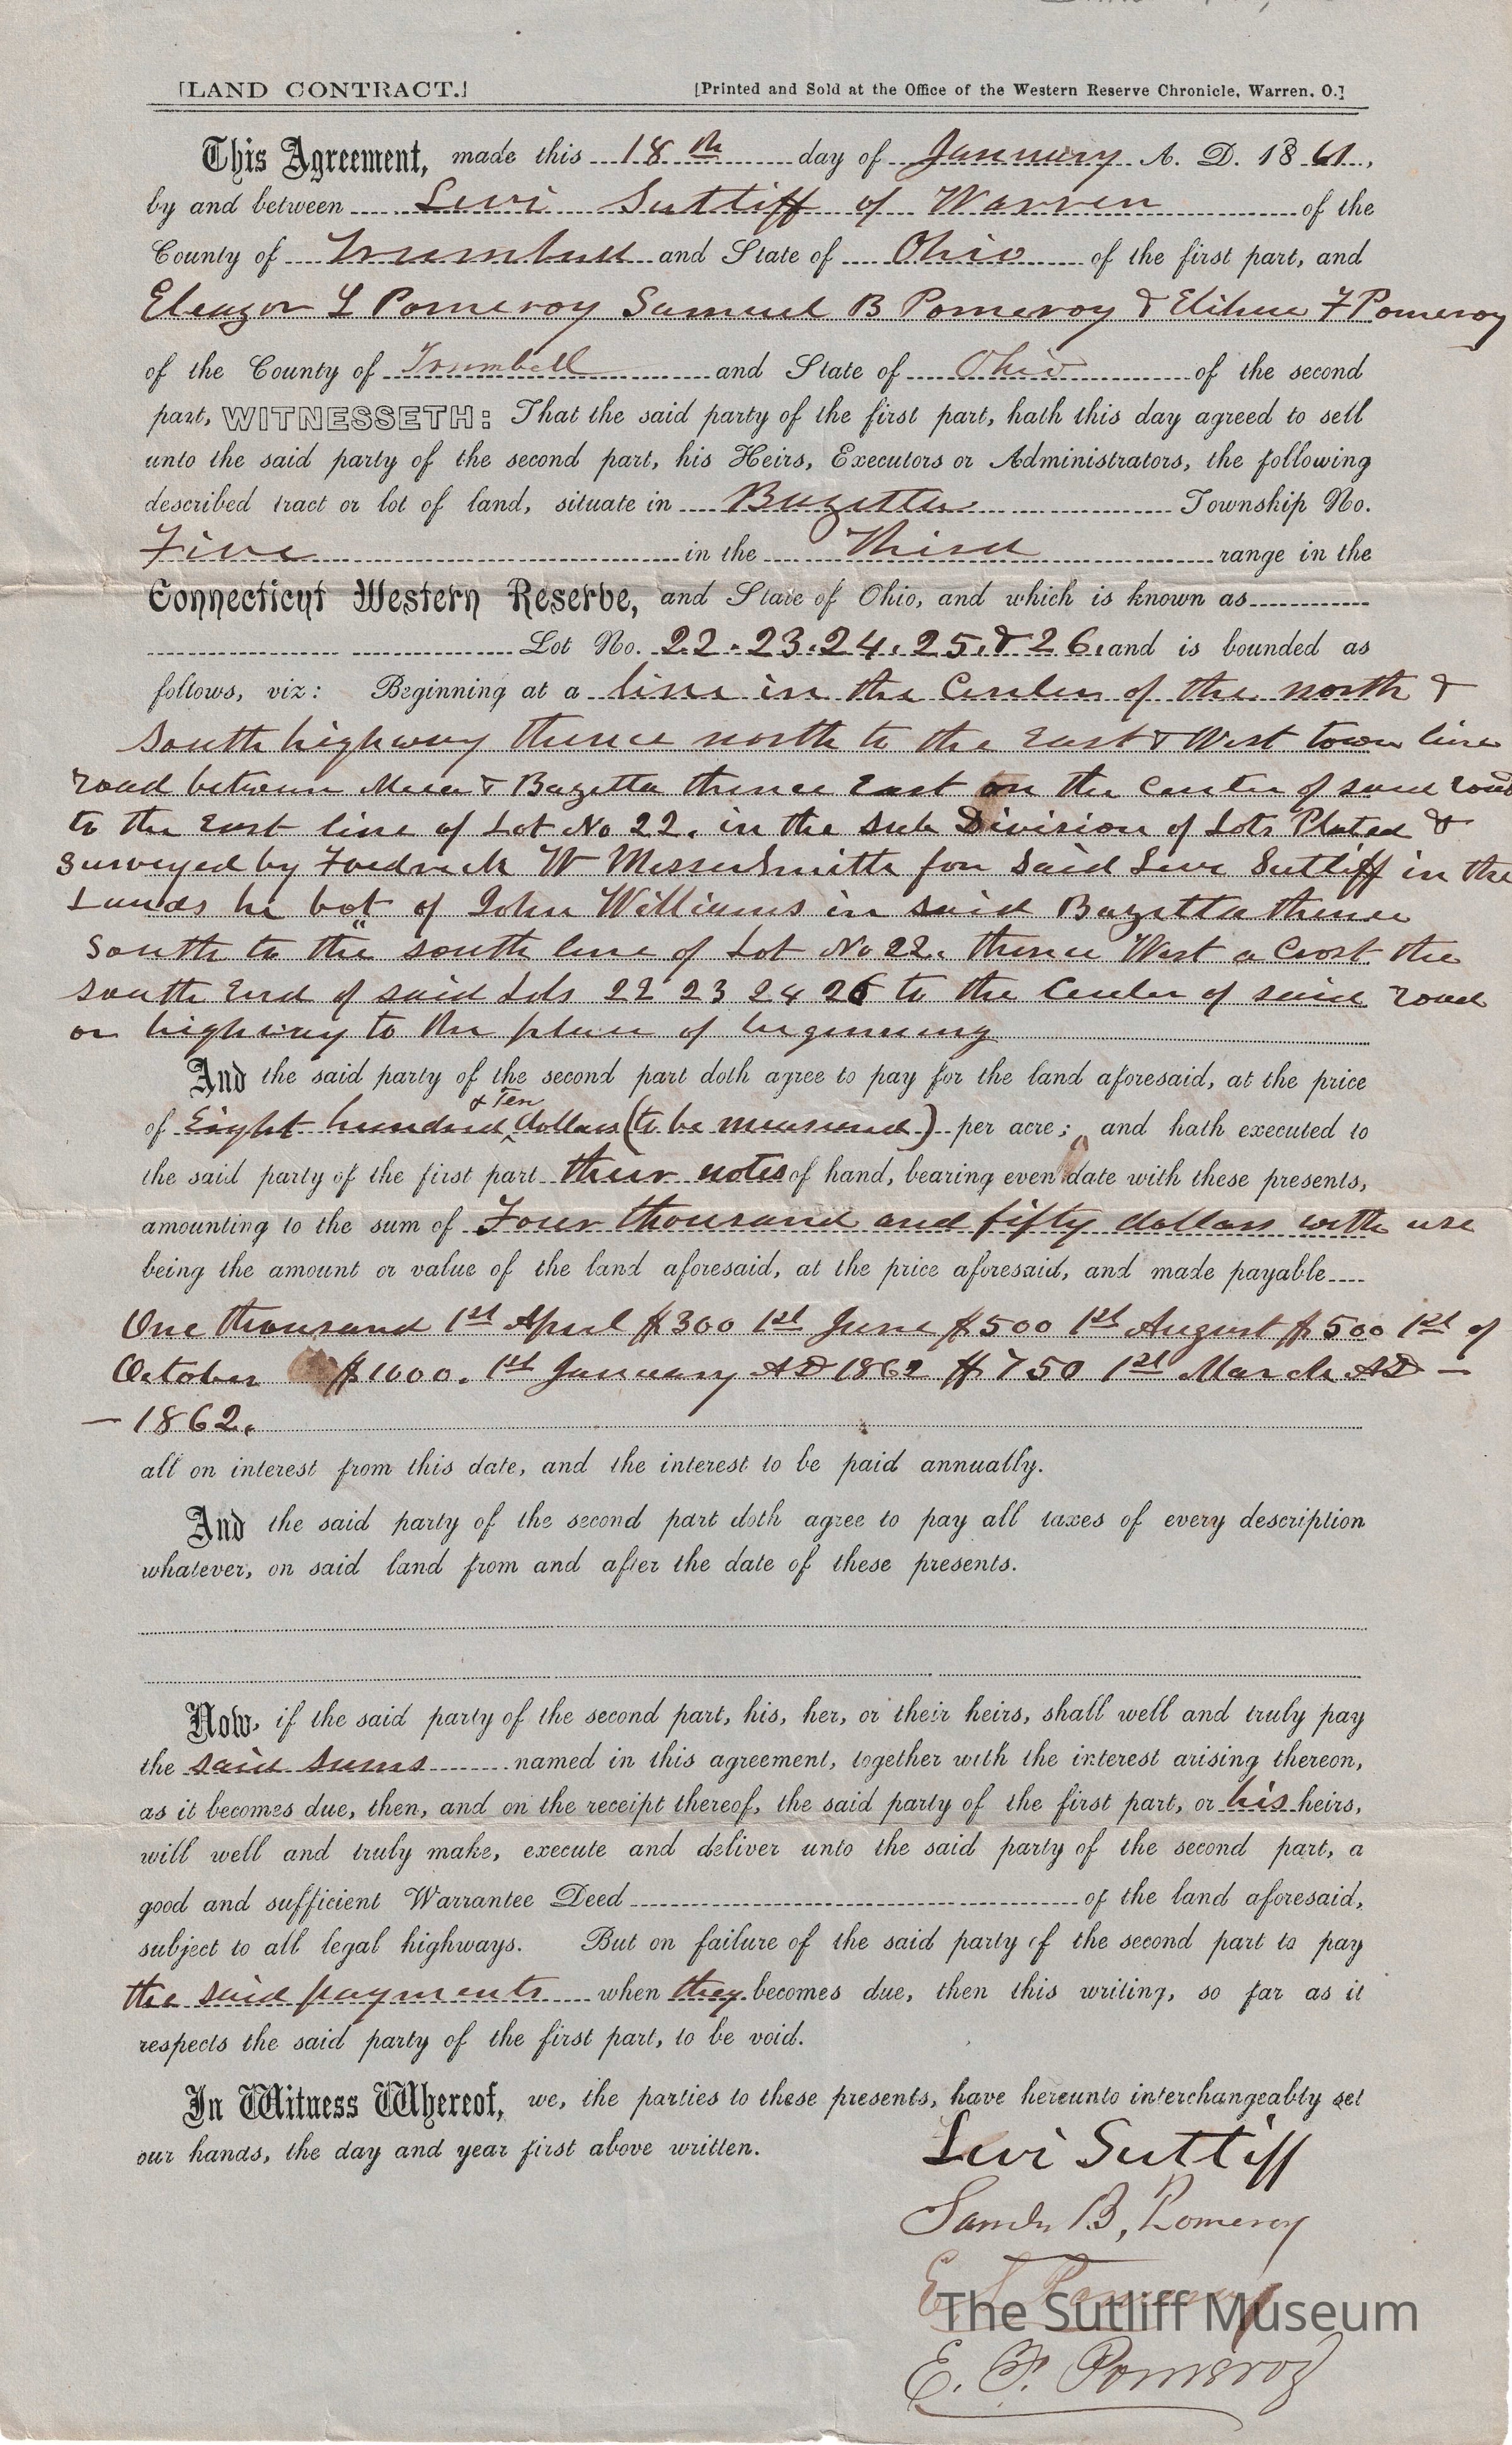 [LAND CONTRACT.] [Printed and Sold at the Office of the Western Reserve Chronicle, Warren, O.]
This Agreement, made this 18th day of January A. D. 1861,
by and between Levi Sutliff of Warren of the
County of Trumbull and State of Ohio of the first part, and
Eleazor L Pomeroy Samuel B Pomeroy & Elihue F Pomeroy
of the County of Trumbell and State of Ohio of the second
part, WITNESSETH: That the said party of the first part, hath this day agreed to sell
unto the said party of the second part, his Heirs, Executors or Administrators, the following
described tract or lot of land, situate in Bazetta Township No.
Five in the Third range in the
Connecticut Western Reserve, and State of Ohio, and which is known as
Lot No. 22. 23. 24. 25. & 26. and is bounded as
follows, viz: Beginning at a line in the Center of the north &
South highway thence north to the East & West town line
road between Mecca & Bazetta thence East on the Center of said road
to the East line of Lot No 22. in the sub Division of Lots Plated &
surveyed by Fredrick W Messersmith for said Levi Sutliff in the
Lands he bot of John Williams in said Bazetta thence
South to the south line of Lot No 22. thence West a Crost the
south End of said Lots 22 23 24 26 to the Center of said road
or highway to the place of beginning
And the said party of the second part doth agree to pay for the land aforesaid, at the price
of Eight hundred & Ten dollars (to be measured) per acre; and hath executed to
the said party of the first part their notes of hand, bearing even date with these presents,
amounting to the sum of Four thousand and fifty dollars with use
being the amount or value of the land aforesaid, at the price aforesaid, and made payable
One thousand 1st April $300 1st June $500 1st August $500 1st of
October $1000. 1st January AD 1862 $750 1st March AD —
— 1862.
all on interest from this date, and the interest to be paid annually.
And the said party of the second part doth agree to pay all taxes of every description
whatever, on said land from and after the date of these presents.
Now, if the said party of the second part, his, her, or their heirs, shall well and truly pay
the said sums named in this agreement, together with the interest arising thereon,
as it becomes due, then, and on the receipt thereof, the said party of the first part, or his heirs,
will well and truly make, execute and deliver unto the said party of the second part, a
good and sufficient Warrantee Deed of the land aforesaid,
subject to all legal highways. But on failure of the said party of the second part to pay
the said payments when they becomes due, then this writing, so far as it
respects the said party of the first part, to be void.
In Witness Whereof, we, the parties to these presents, have hereunto interchangeably set
our hands, the day and year first above written.
Levi Sutliff
Saml B, Pomeroy
E. L Pomeroy
The Sutliff Museum
E. F. Pomeroy